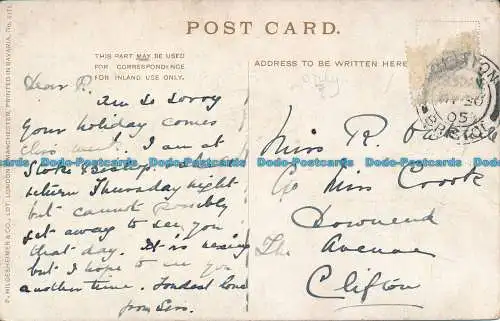 POST CARD.
THIS PART MAY BE USED
FOR CORRESPONDENCE
FOR INLAND USE ONLY.
ADDRESS TO BE WRITTEN HERE
only
Dear R.
Am so sorry
your holiday comes
this week. I am at
Stoke Bishop,
return Thursday night
but cannot possibly
get away to see you
that day. It is vexing
but I hope to see you
another time. Fondest love
from Sis.
Miss R.
c/o Miss Crook
Downend
The Avenue
Clifton
CLIFTON
BRISTOL
30
05
P. HILDESHEIMER & CO., LD., LONDON & MANCHESTER. PRINTED IN BAVARIA. No.
Dodo-Postcards Dodo-Postcards Dodo-Postcards Dodo-Postcards Dodo-Postcards